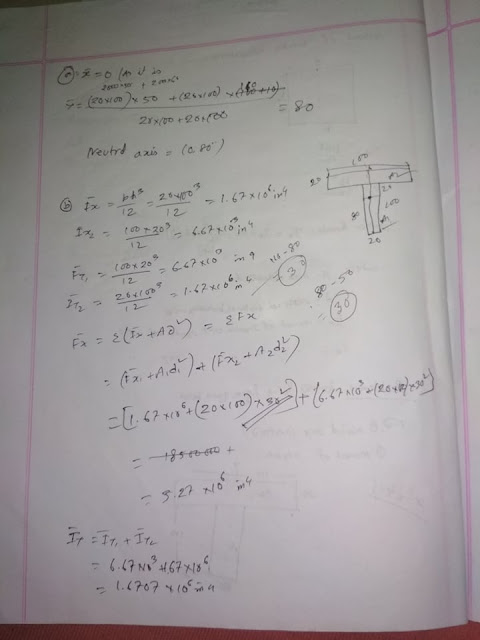 ⓐ x̄ = 0 (As it is
2000×50 + 2000×
ȳ = (20×100)×50 + (20×100)×(100+10) / 20×100+20×100 = 80
Neutral axis = (0,80)
ⓑ Īx₁ = bh³/12 = 20×100³/12 = 1.67×10⁶ in4
Īx₂ = 100×20³/12 = 6.67×10³ in4
Īy₁ = 100×20³/12 = 6.67×10³ in4
Īy₂ = 20×100³/12 = 1.67×10⁶ in4
110-80
30
80-50
= 30
Īx = Σ(Īx+Ad²) = ΣIx
= (Īx₁+A₁d₁²)+(Īx₂+A₂d₂²)
= [1.67×10⁶+(20×100)×30²]+(6.67×10³+(20×100)×30²)
= 18500000 +
= 5.27×10⁶ in4
Īy = Īy₁+Īy₂
= 6.67×10³+1.67×10⁶
= 1.6707×10⁶ in4
100
20
20
100
80
20